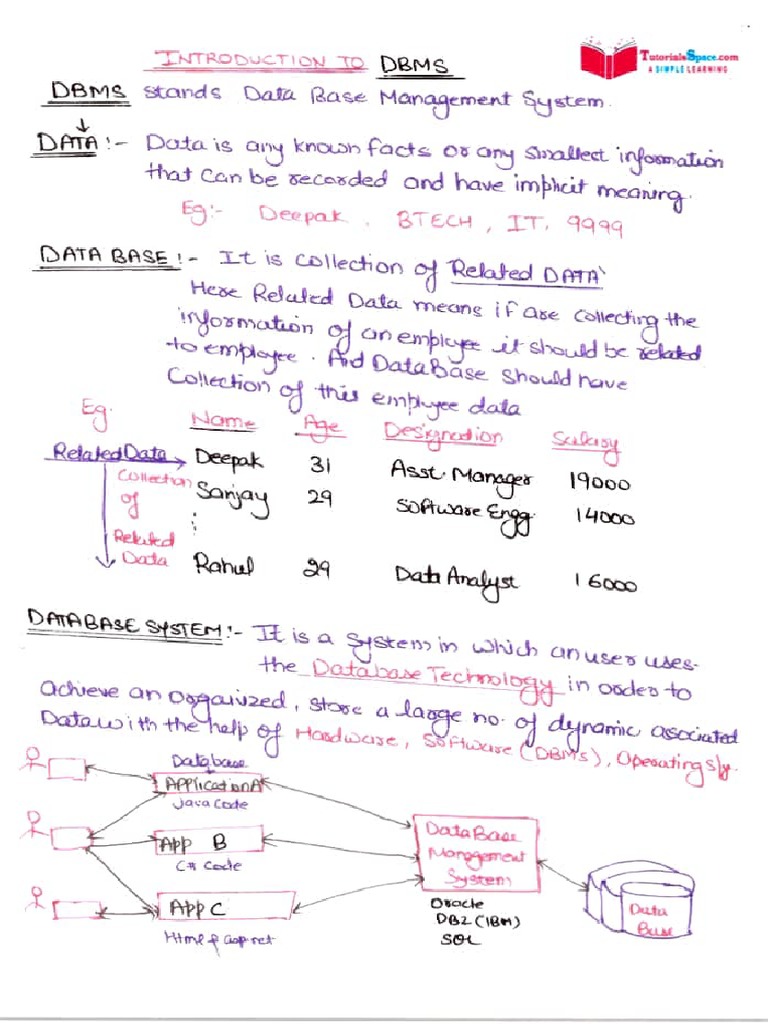 INTRODUCTION TO DBMS
TutorialsSpace.com
A SIMPLE LEARNING
DBMS stands Data Base Management System.
DATA :- Data is any known facts or any smallest information
that can be recorded and have implicit meaning.
Eg:- Deepak, BTECH, IT, 9999
DATA BASE :- It is collection of Related DATA
Here Related Data means if are collecting the
information of an employee it should be related
to employee. And DataBase should have
Collection of this employee data
Eg. Name Age Designation Salary
Related Data Deepak 31 Asst. Manager 19000
Collection of Related Data
Sanjay 29 Software Engg. 14000
Rahul 29 Data Analyst 16000
DATABASE SYSTEM :- It is a system in which an user uses
the Database Technology in order to
achieve an organized, store a large no. of dynamic asociated
Data with the help of Hardware, Software (DBMS), Operating sy.
Database
Application A
Java Code
App B
C# Code
App C
Html & asp.net
DataBase
Management
System
Oracle
DB2 (IBM)
SQL
Data
Base